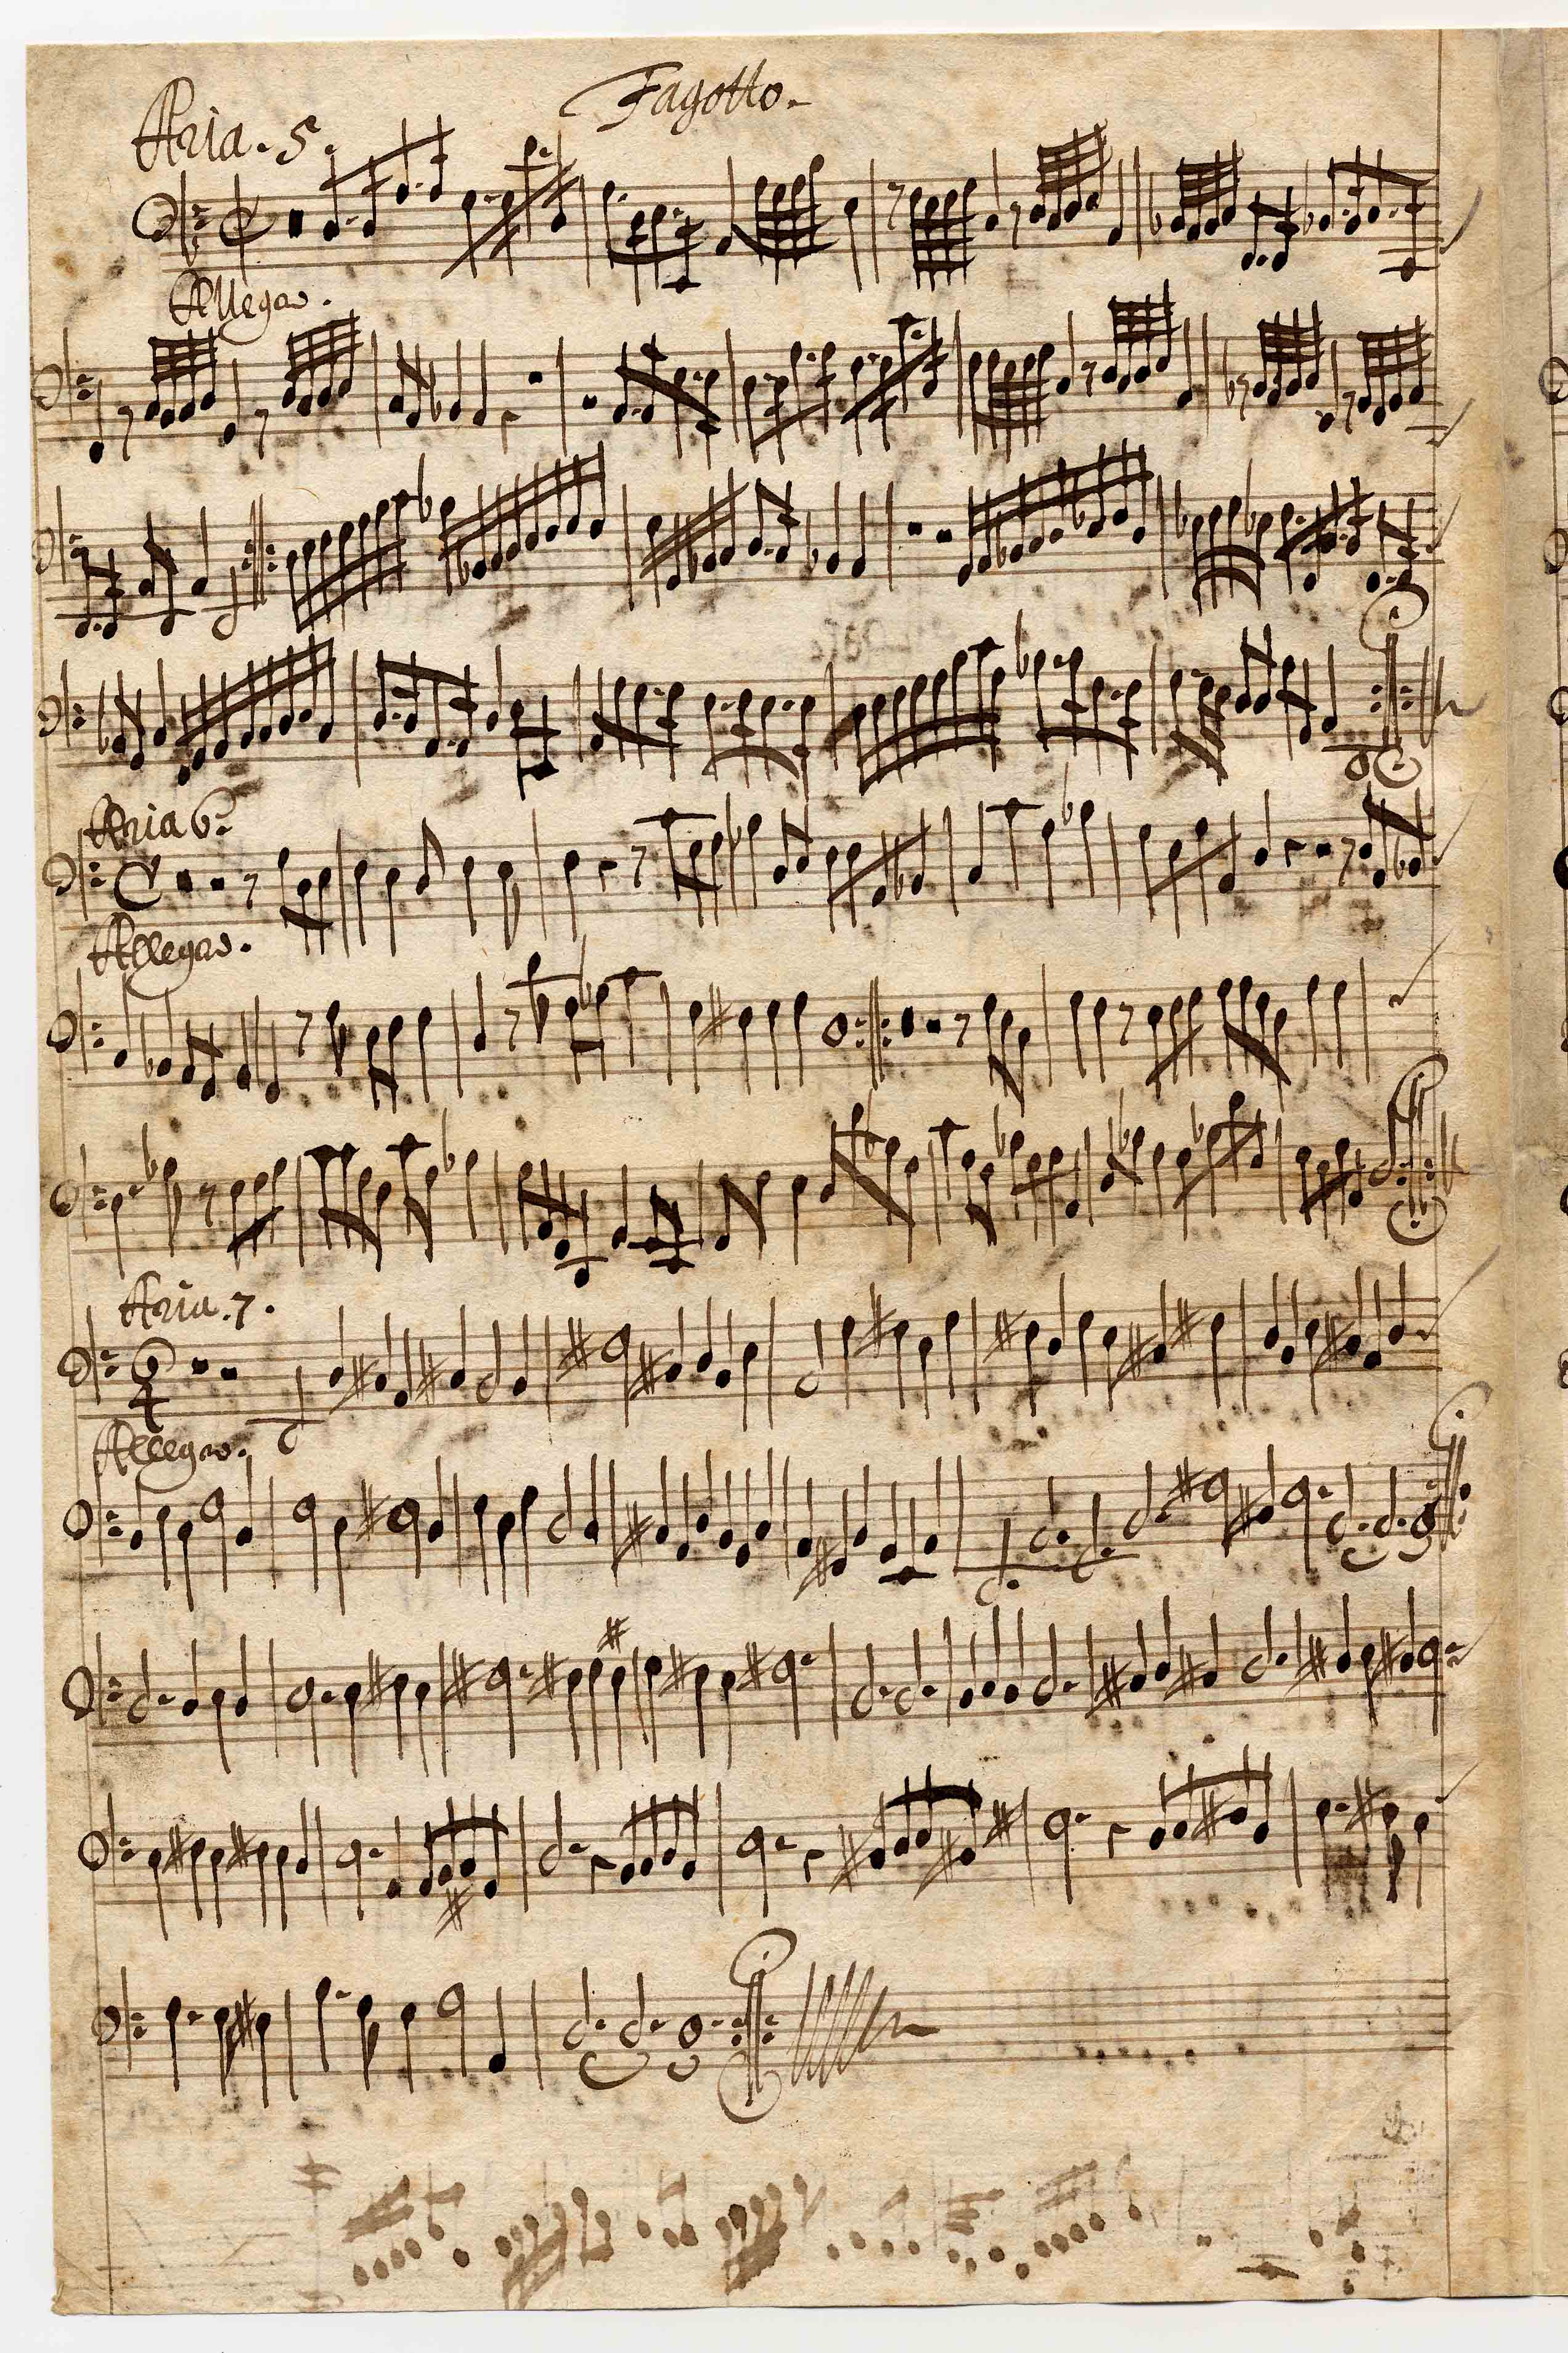 Fagotto.
Aria. 5.
Allegro.
Aria 6.
Allegro.
Aria. 7.
Allegro.